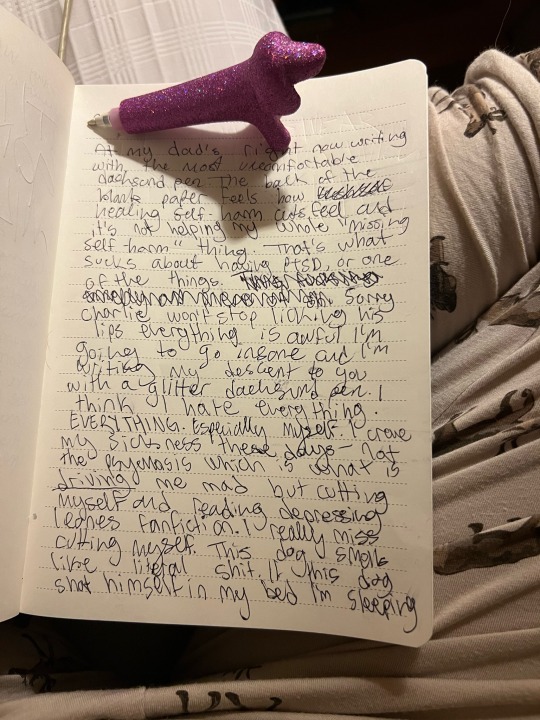 At my dad's right now writing
with the most uncomfortable
dachsund pen. The back of the
blank paper feels how
healing self-harm cuts feel and
it's not helping my whole "missing
self harm" thing. That's what
sucks about having PTSD, or one
of the things.
Sorry
charlie won't stop licking his
lips everything is awful I'm
going to go insane and I'm
writing my descent to you
with a glitter dachsund pen. I
think I hate everything.
EVERYTHING. Especially myself. I crave
my sickness these days - not
the psychosis which is what is
driving me mad but cutting
myself and reading depressing
fanfiction. I really miss
cutting myself. This dog smells
like literal shit. If this dog
shat himself in my bed I'm sleeping